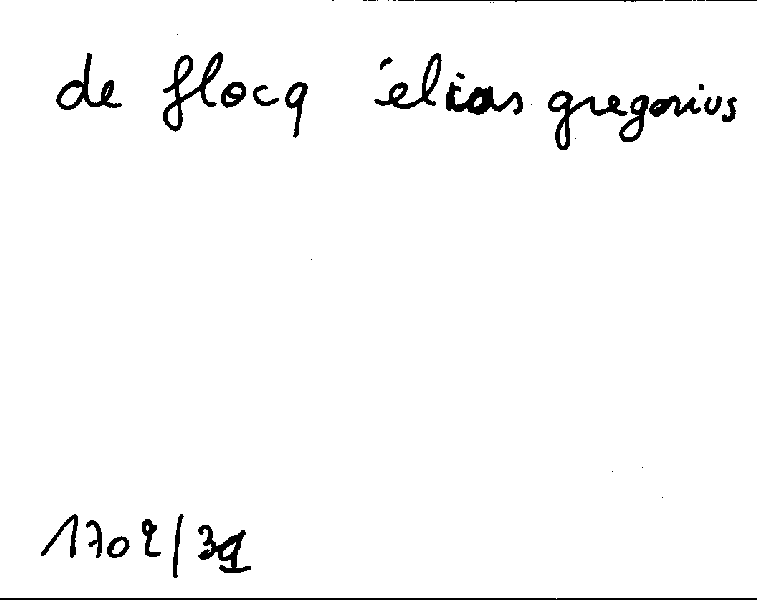 de flocq élias gregorius
1702/39